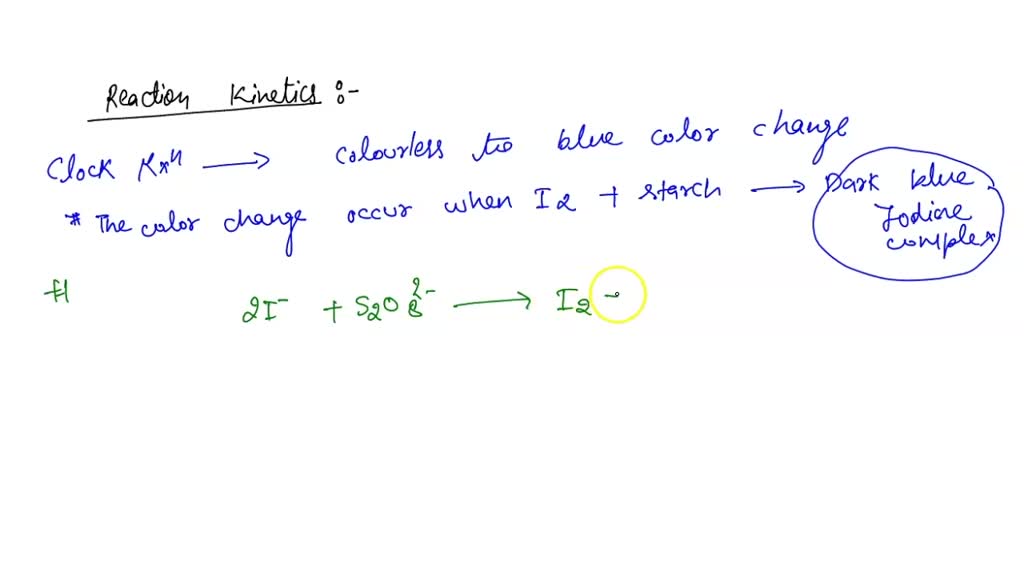 Reaction Kinetics :-
Clock Rxn → colourless to blue color change
* The color change occur when I2 + starch → Dark blue
Iodine
complex
#
2I⁻ + S2O8²⁻ → I2 -